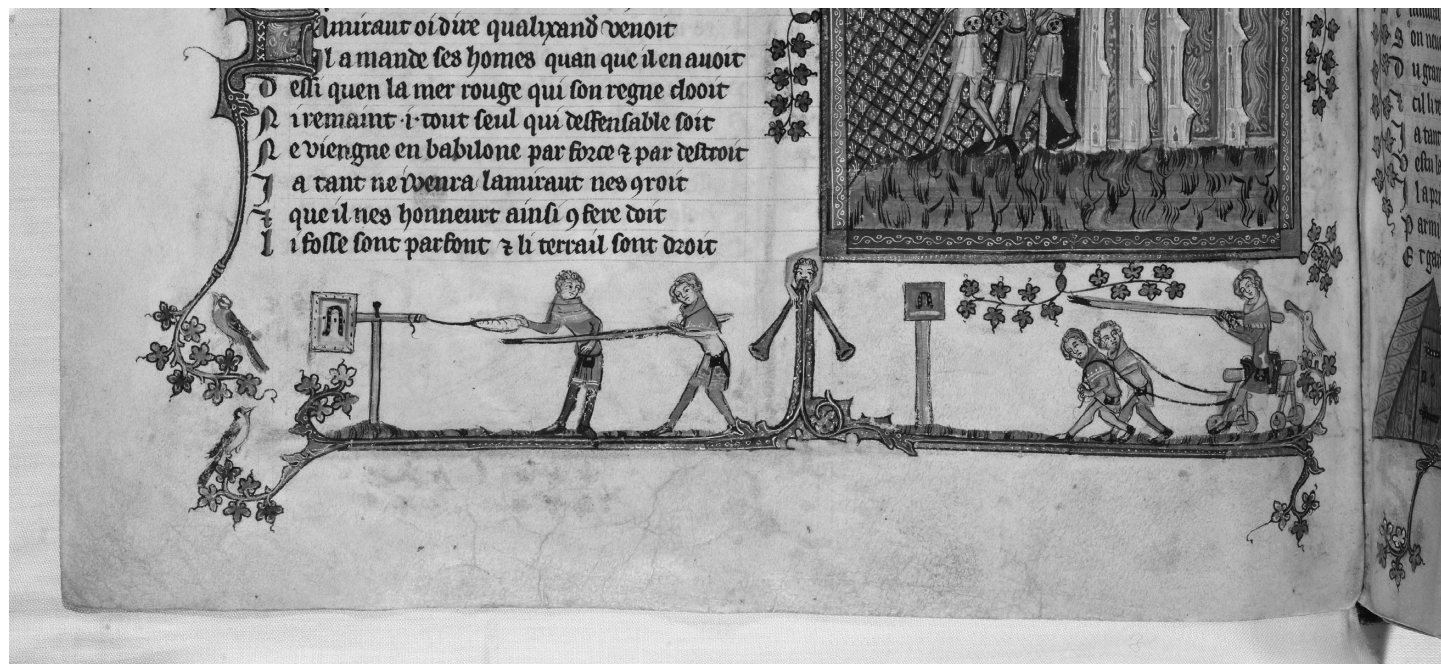 Lamiraut oi dire qualixand' venoit
Il a mande ses homes quan que il en auoit
D essi quen la mer rouge qui son regne clooit
N i remaint .i. tout seul qui deffensable soit
N e viengne en babilone par force ⁊ par destroit
J a tant ne i venra lamiraut nes ꝯroit
⁊ que il nes honneurt ainsi ꝯ fere doit
L i fosse sont parfont ⁊ li terrail sont droit
s on
D u gran
⁊ cil
J a tant
J la
P armi
E t